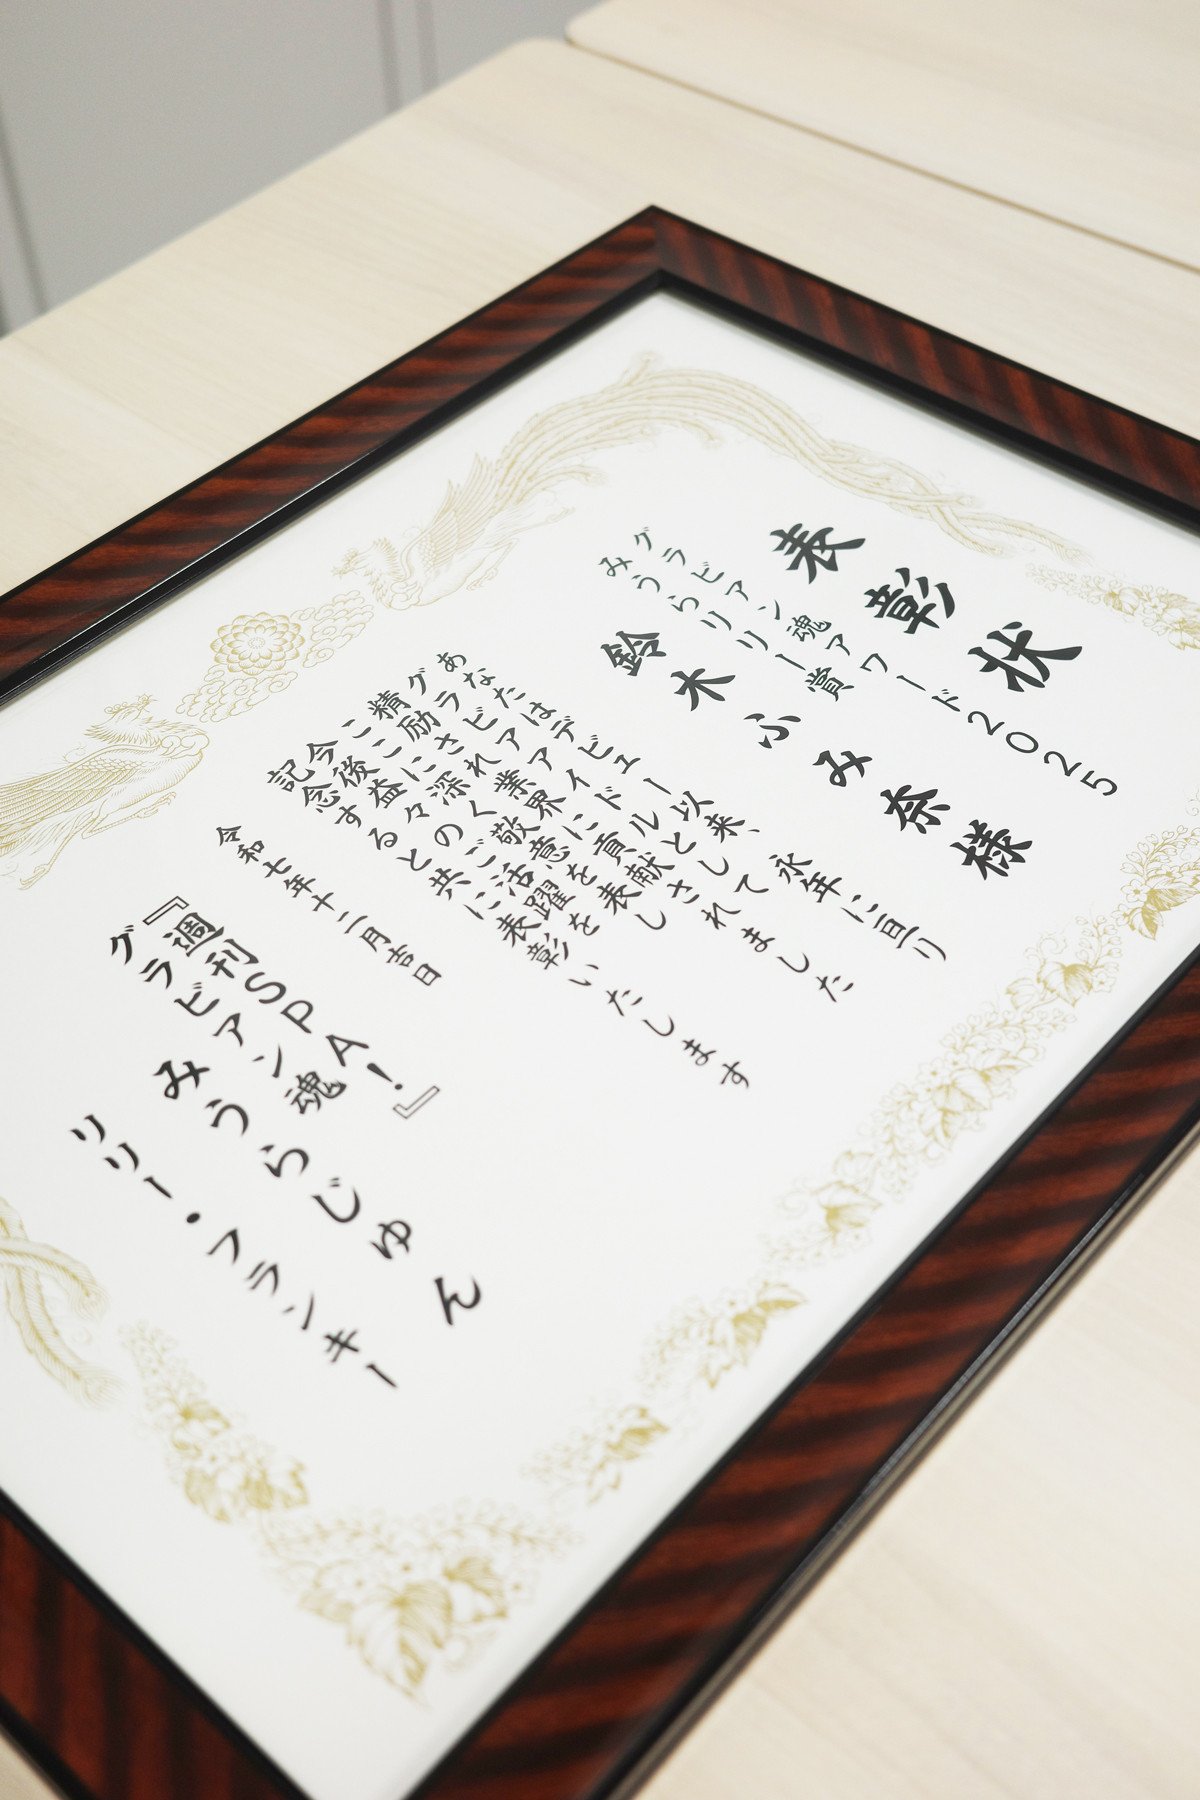 表彰状
グラビアン魂アワード2025
みうらリリー賞
鈴木ふみ奈様
あなたはデビュー以来、永年に亘り
グラビアアイドルとして
業界に貢献されました
精励され深く敬意を表し
ここに益々のご活躍を
今後に
記念すると共に表彰いたします
令和七年十二月吉日
『週刊SPA!』
グラビアン魂
みうらじゅん
リリー・フランキー